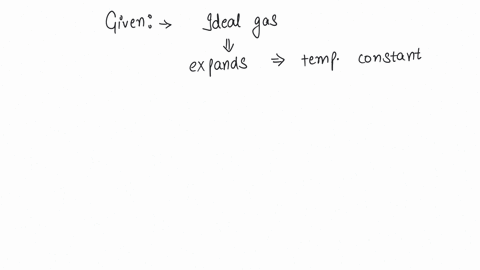 Given: → Ideal gas
⇓
expands ⇒ temp. constant